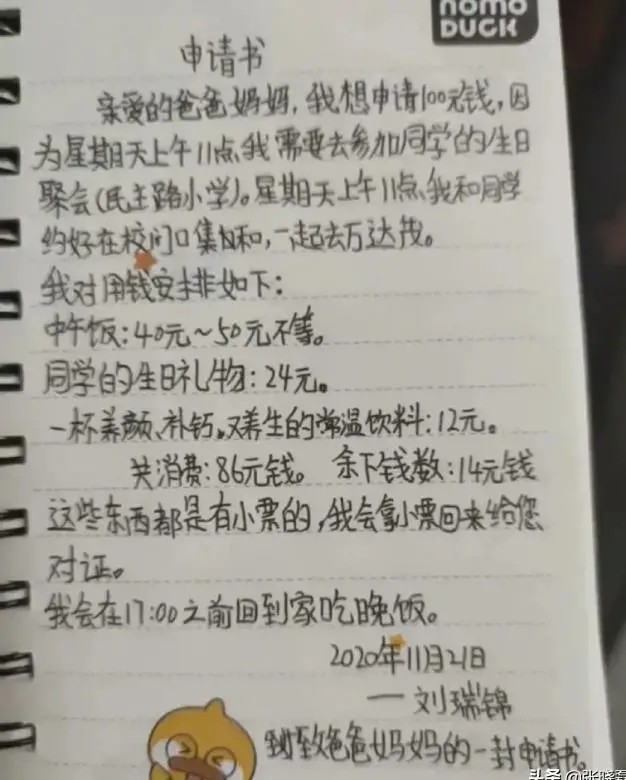 nomo
DUCK
申请书
亲爱的爸爸妈妈,我想申请100元钱,因
为星期天上午11点我需要去参加同学的生日
聚会(民主路小学)。星期天上午11点我和同学
约好在校门口集合和,一起去万达茂。
我对用钱安排如下:
中午饭:40元~50元不等。
同学的生日礼物:24元。
一杯养颜、补钙。又养生的常温饮料:12元。
共消费:86元钱。 余下钱数:14元钱
这些东西都是有小票的,我会拿小票回来给您
对证。
我会在17:00之前回到家吃晚饭。
2020年11月21日
——刘瑞锦
致爸爸妈妈的一封申请书。
头条@张